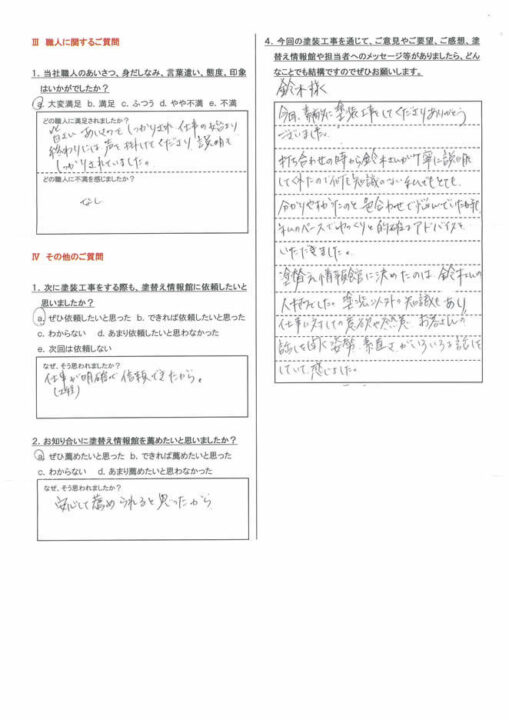 Ⅲ 職人に関するご質問
1. 当社職人のあいさつ、身だしなみ、言葉遣い、態度、印象
はいかがでしたか？
a. 大変満足 b. 満足 c. ふつう d. やや不満 e. 不満
どの職人に満足しましたか？
皆さん あいさつもしっかりされ 仕事の始まり
終わりには声を掛けてくださり 説明も
しっかりされていました。
どの職人に不満を感じましたか？
なし
Ⅳ その他のご質問
1. 次に塗装工事をする際も、塗替え情報館に依頼したいと
思いましたか？
a. ぜひ依頼したいと思った b. できれば依頼したいと思った
c. わからない d. あまり依頼したいと思わなかった
e. 次回は依頼しない
なぜ、そう思われましたか？
仕事が明確で 信頼できたから。
2. お知り合いに塗替え情報館を薦めたいと思いましたか？
a. ぜひ薦めたいと思った b. できれば薦めたいと思った
c. わからない d. あまり薦めたいと思わなかった
なぜ、そう思われましたか？
安心して薦められると思ったから
4. 今回の塗装工事を通じて、ご意見やご要望、ご感想、塗
替え情報館や担当者へのメッセージ等がありましたら、どん
なことでも結構ですのでぜひお願いします。
鈴木様へ
今回、素敵に塗装工事をしてくださりありがとう
ございました。
打ち合わせの時から鈴木さんが丁寧に説明
してくれたので何も知識のない私でもとても
分かりやすかったのと色合わせで悩んでいた時も
私のペースでゆっくりと的確なアドバイスを
いただきました。
塗替え情報館に決めたのは 鈴木さんの
人柄でした。塗装、ソフトの知識もあり
仕事に対しての意欲や熱意 お客さんの
話しを聞く姿勢 素直さがいろいろな話しを
していて感じました。